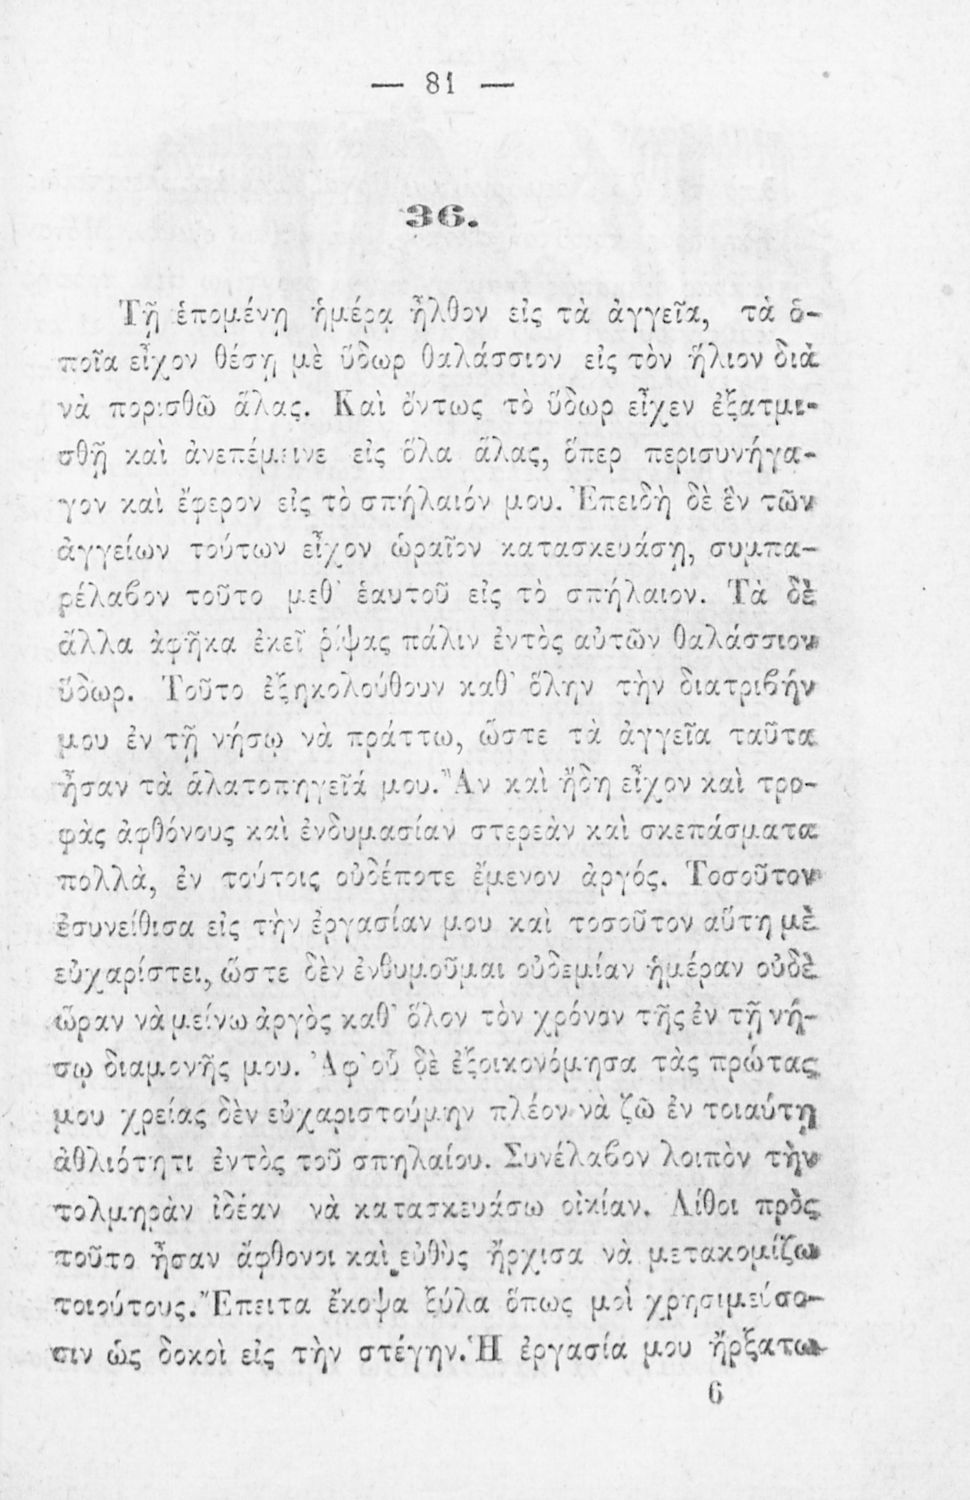 — 81 —
36.
Τῇ ἑπομένῃ ἡμέρᾳ ἦλθον εἰς τὰ ἀγγεῖα, τὰ ὁ-
ποῖα εἶχον θέσῃ μὲ ὕδωρ θαλάσσιον εἰς τὸν ἥλιον διὰ
νὰ πορισθῶ ἅλας. Καὶ ὄντως τὸ ὕδωρ εἶχεν ἐξατμι-
σθῇ καὶ ἀνεπέμεινε εἰς ὅλα ἅλας, ὅπερ περισυνήγα-
γον καὶ ἔφερον εἰς τὸ σπήλαιόν μου. Ἐπειδὴ δὲ ἓν τῶν
ἀγγείων τούτων εἶχον ὡραῖον κατασκευάσῃ, συμπα-
ρέλαβον τοῦτο μεθ' ἑαυτοῦ εἰς τὸ σπήλαιον. Τὰ δὲ
ἄλλα ἀφῆκα ἐκεῖ ῥίψας πάλιν ἐντὸς αὐτῶν θαλάσσιον
ὕδωρ. Τοῦτο ἐξηκολούθουν καθ' ὅλην τὴν διατριβήν
μου ἐν τῇ νήσῳ νὰ πράττω, ὥστε τὰ ἀγγεῖα ταῦτα
ἦσαν τὰ ἁλατοπηγεῖά μου. Ἂν καὶ ἤδη εἶχον καὶ τρο-
φὰς ἀφθόνους καὶ ἐνδυμασίαν στερεὰν καὶ σκεπάσματα
πολλὰ, ἐν τούτοις οὐδέποτε ἔμενον ἀργός. Τοσοῦτον
ἐσυνείθισα εἰς τὴν ἐργασίαν μου καὶ τοσοῦτον αὕτη μὲ
εὐχαρίστει, ὥστε δὲν ἐνθυμοῦμαι οὐδεμίαν ἡμέραν οὐδὲ
ὥραν νὰ μείνω ἀργὸς καθ' ὅλον τὸν χρόνον τῆς ἐν τῇ νή-
σῳ διαμονῆς μου. Ἀφ' οὗ δὲ ἐξοικονόμησα τὰς πρώτας
μου χρείας δὲν εὐχαριστούμην πλέον νὰ ζῶ ἐν τοιαύτῃ
ἀθλιότητι ἐντὸς τοῦ σπηλαίου. Συνέλαβον λοιπὸν τὴν
τολμηρὰν ἰδέαν νὰ κατασκευάσω οἰκίαν. Λίθοι πρὸς
τοῦτο ἦσαν ἄφθονοι καὶ εὐθὺς ἤρχισα νὰ μετακομίζω
τοιούτους. Ἔπειτα ἔκοψα ξύλα ὅπως μοὶ χρησιμεύσο-
σιν ὡς δοκοὶ εἰς τὴν στέγην. Ἡ ἐργασία μου ἤρξατω
6